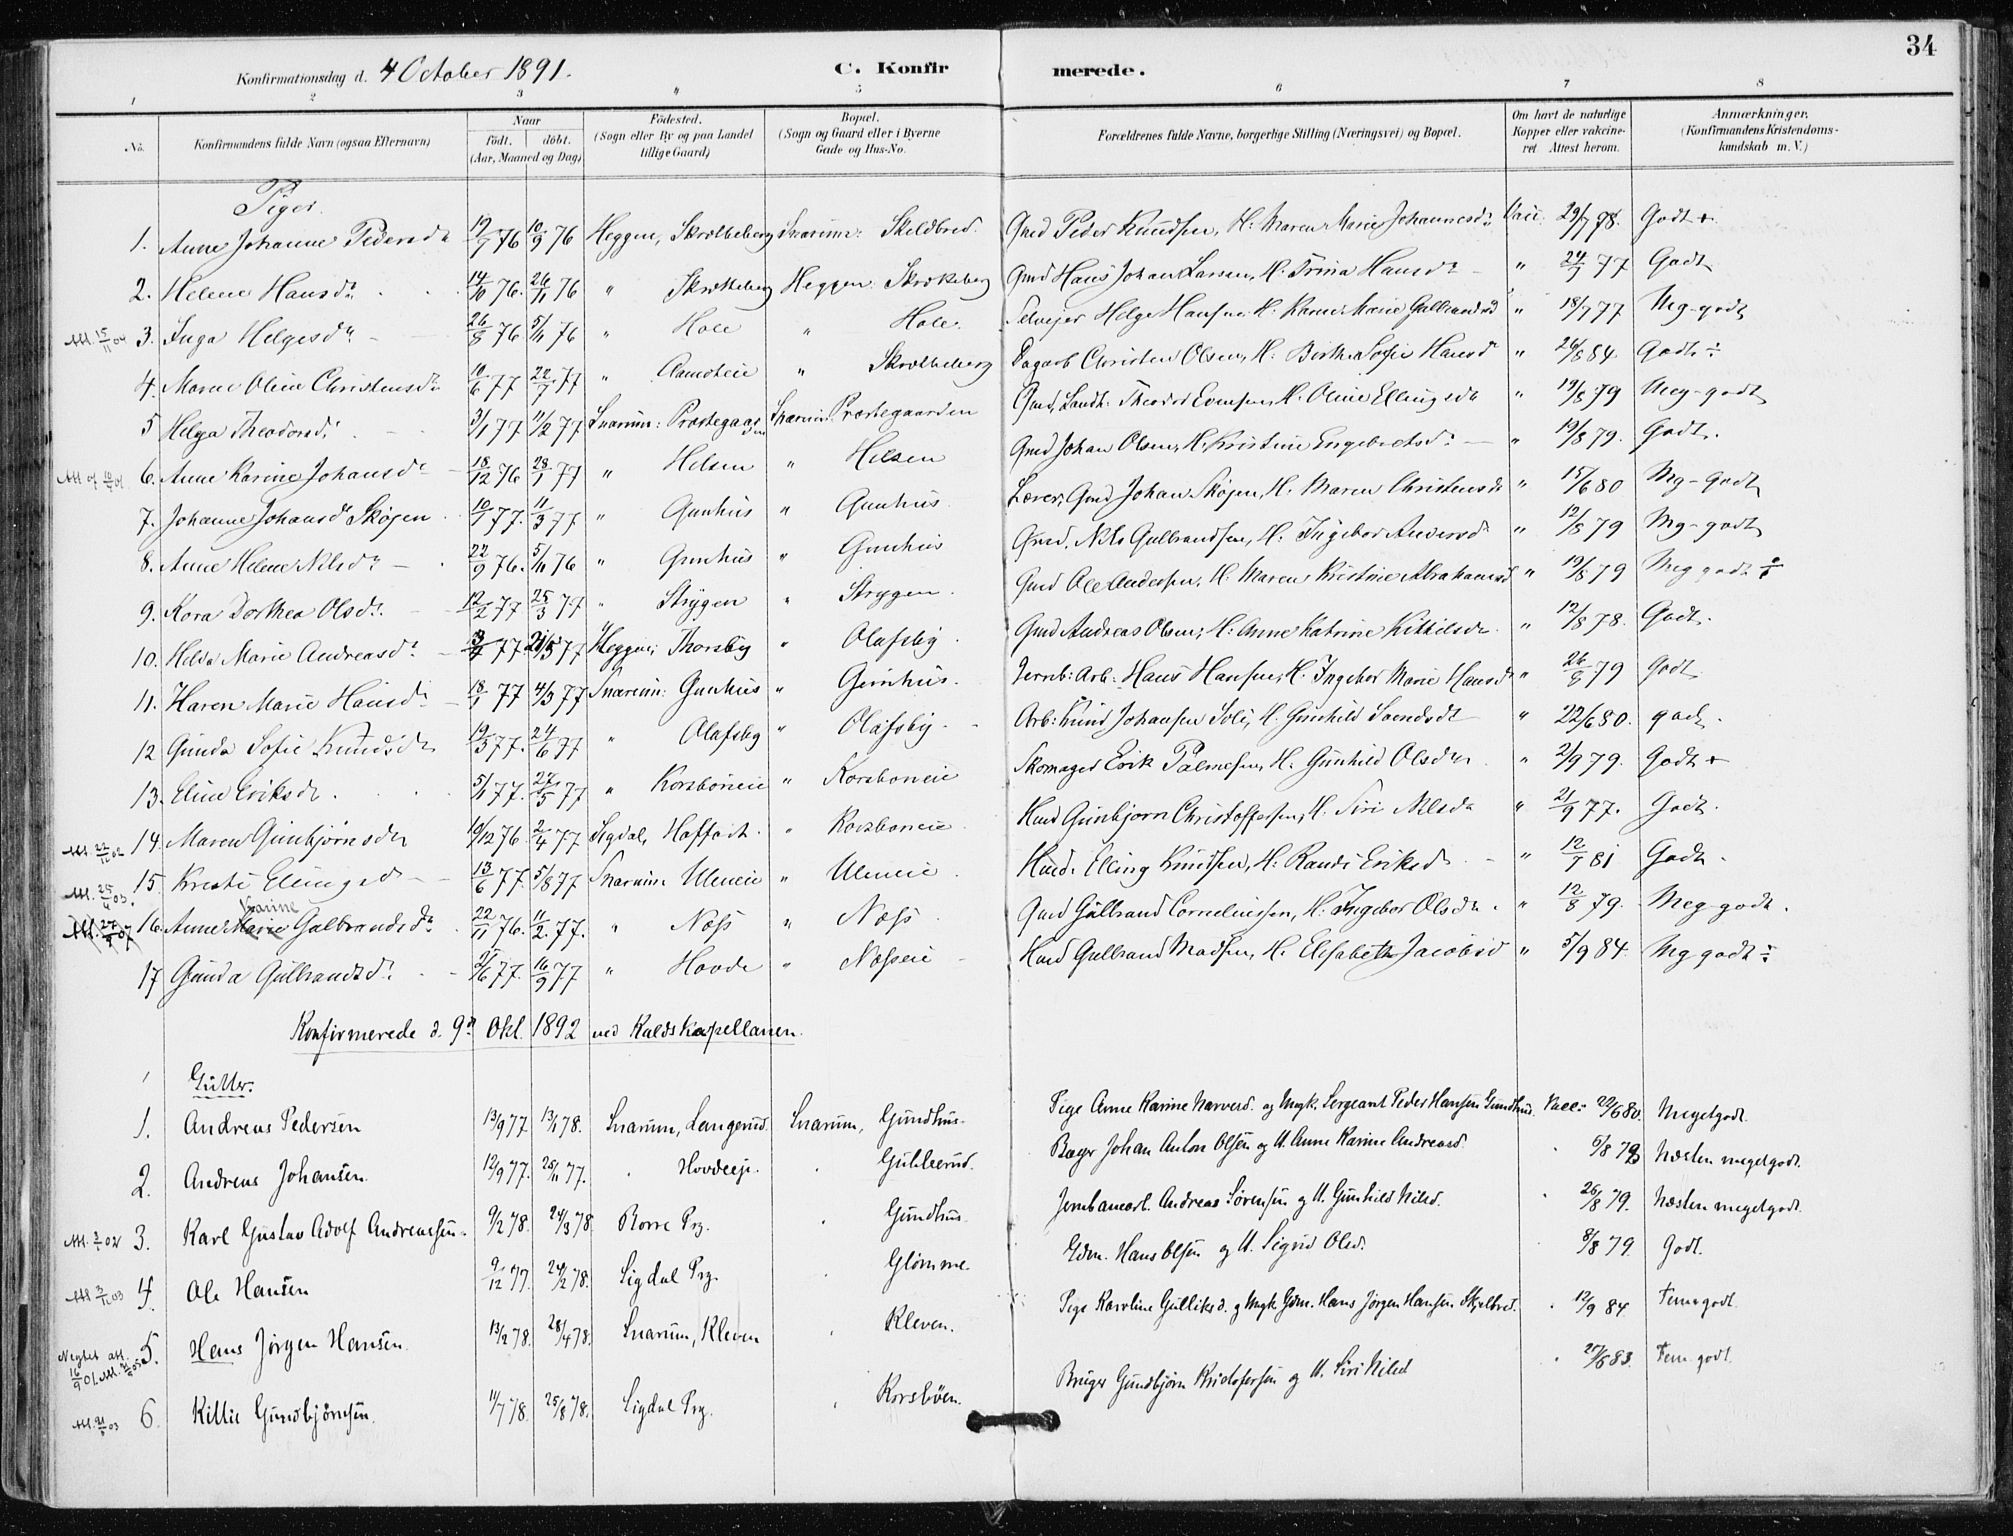 34
Konfirmationsdag d. 4 October 1891. C. Konfirmerede.
1 2 3 4 5 6 7 8
No. Konfirmandens fulde Navn (ogsaa Efternavn) Naar født. døbt. (Aar, Maaned og Dag) Fødested. (Sogn eller By og paa Landet tillige Gaard) Bopæl. (Sogn og Gaard eller i Byerne Gade og Hus-No. Forældrenes fulde Navne, borgerlige Stilling (Næringsvei) og Bopæl. Om havt de naturlige Kopper eller vakcineret Attest herom. Anmærkninger. (Konfirmandens Kristendomskundskab m. V.)
Piger.
1. Anne Johanne Pedersd. 19/7 76 10/9 76 Heggen, Skrolteberg Snarum: Skeldbred. Gmd Peder Knudsen, H: Maren Marie Johannesdr Vacc. 29/7 78. Godt +
2. Helene Hansdr 14/10 76. 26/11 76 " Skrolteberg Heggen Skrolteberg Gmd Hans Johan Larsen, H. Trina Hansdr " 24/7 77 Godt
Att. 15/11 04 3. Inga Helgesdr 26/8 76 5/11 76 " Hole " Hole. Selvejer Helge Hansen H. Karen Marie Gulbrandsd " 18/7 77 Mg-godt
4. Maren Oline Christensdr 10/6 77 22/7 77 " " Skrolteberg Dagarb Christen Olsen, H. Berthe Sofie Hansd " 24/8 84. Godt ÷
5 Helga Theodorsd. 3/1 77 11/2 77 Snarum: Prestegaarden Snarum Præstegaarden Gmd, Landh: Theodor Evensen, H. Oline Ellingsdr " 19/8 79 Meg-godt
6. Anne Karine Johansdr 18/12 76 28/1 77 " Helsen " Helsen Gmd Johan Olsen, H. Kristine Engebretsdr " 19/8 79. Godt.
7. Johanne Johansd Skøjen 10/1 77. 11/3 77 " Gunhus " Gunhus Lærer, Gmd Johan Skøjen, H. Maren Christensdr " 15/6 80 Mg-Godt
8. Anne Helene Nilsdr 22/9 76. 5/11 76 " Gunhus " Gunhus Gmd. Nils Gulbrandsen, H. Ingebor Andersd " 12/8 79 Mg-godt
9. Kora Dorthea Olsdr. 12/2 77 25/3 77 " Strygen " Strygen Gmd Ole Andersen, H. Maren Kristine Abrahamsd " 19/8 79 Meg godt ÷
10. Helda Marie Andreasdr 77 21/5 77 Heggen, Thorsby " Olafsby. Gmd Andreas Olsen, H: Anne Katrine Kittilsdr " 12/8 78. Godt.
11. Karen Marie Hansdr 18/1 77 4/3 77 Snarum: Gunhus " Gunhus. Jernb: Arb: Hans Hansen, H. Ingebor Marie Hansd " 26/8 79 Godt
12 Gunda Sofie Knudsdr 19/3 77. 24/6 77 " Olafsby " Olafsby. Arb: Knud Johansen Soli, H. Gunhild Svendsdr " 22/6 80. godt.
13. Eline Eriksdr. 5/1 77. 27/5 77 " Korsboneie " Korsboneie Skomager Erik Palmesen, H: Gunhild Olsdr " 2/9 79. Godt +
Att. 22/12 02 14. Maren Gunbjørnsdr 19/12 76. 2/4 77 Sigdal, Haffort. " Korsboneie Hmd Gunbjørn Christoffersen, H. Siri Nilsdr " 21/9 77. Godt.
Att. 25/4 03. 15. Kristi Ellingsd 13/6 77. 5/8 77 Snarum Uleneie " Uleneie Hmd. Elling Knudsen, H: Randi Eriksdr " 12/7 81 Godt.
Att. 27/9 07 16. Anne Marie Karine Gulbrandsdr 22/11 76. 11/2 77. " Næss " Næss Gmd Gulbrand Corneliussen, H: Ingebor Olsdr. " 12/8 79. Meg-godt.
17 Gunda Gulbrandsdr. 77. 16/9 77 " Hovde " Næsseie Hmd Gulbrand Madsen, H. Elisabeth Jacobsd " 5/9 84. Mg godt ÷
Konfirmerede d. 9de Okt. 1892 ved Kaldskapellanen.
Gutter.
1. Andreas Pedersen 13/9 77. 13/1 78. Snarum, Langerud. Snarum, Gundhus. Pige Anne Karine Narvesd. og Ungk. Sergeant Peder Hansen Gundhus. Vacc: 22/6 80. Megetgodt.
2. Andreas Johansen. 12/9 77. 25/11 77. " Hovdeeje. " Gullerud. Bager Johan Anton Olsen og H. Anne Karine Andreasd. " 6/8 79 Næsten megetgodt.
Att. 3/1 02 3. Karl Gustav Adolf Andreassen. 9/2 78. 24/3 78. Borre Prg. " Gundhus. Jernbanearb. Andreas Sørensen og H. Gunhild Nilsd. " 26/8 79. Næsten megetgodt.
Att 3/12 03 4. Ole Hansen 9/12 77. 24/2 78. Sigdal Prg. " Glomme. Gdm. Hans Olsen og H. Sigrid Olsd. 8/8 79. Godt.
Negtet att. 16/9 01. 5. Hans Jørgen Hansen. 13/2 78. 28/4 78. Snarum, Kleven " Kleven. Pige Karoline Gulliksd. og Ungk. Gdm. Hans Jørgen Hansen Skjelbred. " 12/9 84 Temgodt.
Att. 21/8 03 6. Kittil Gundbjørnsen. 11/7 78. 25/8 78. Sigdal Prg. " Korsbøen. Bruger Gundbjørn Kristofersen og H. Siri Nilsd " 27/8 83. Tem. godt.